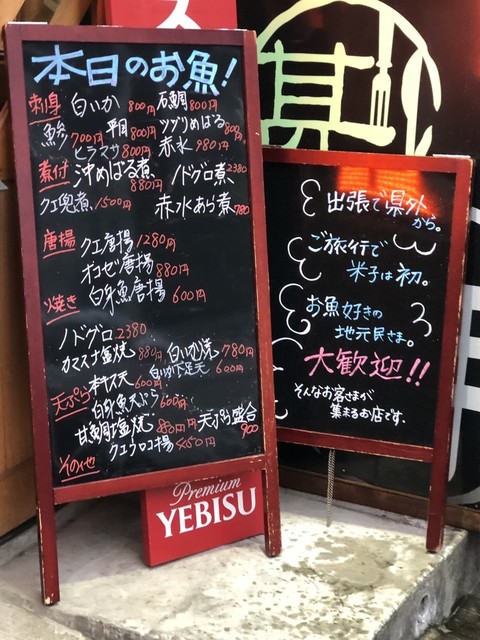 本日のお魚!
刺身 白いか 800円 石鯛 800円
鯵 700円 平目 800円 ツブリめばる 800円
ヒラマサ 800円 赤水 980円
煮付 沖めばる煮 880円 ノドグロ煮 2380
クエ兜煮 1500円 赤水あら煮 780
唐揚 クエ唐揚 1280円
オコゼ唐揚 880円
白身魚唐揚 600円
焼き
ノドグロ 2380
カマス塩焼 880円 白いか焼 780円
天ぷら キス天 600円 白いか下足天 600円
白身魚天ぷら 600円
甘鯛塩焼 880円 天ぷら盛合 900
クエウロコ揚 450円
その他
Premium
YEBISU
某
出張で県外から。
ご旅行で
米子は初。
お魚好きの
地元民さま。
大歓迎!!
そんなお客さまが
集まるお店です。